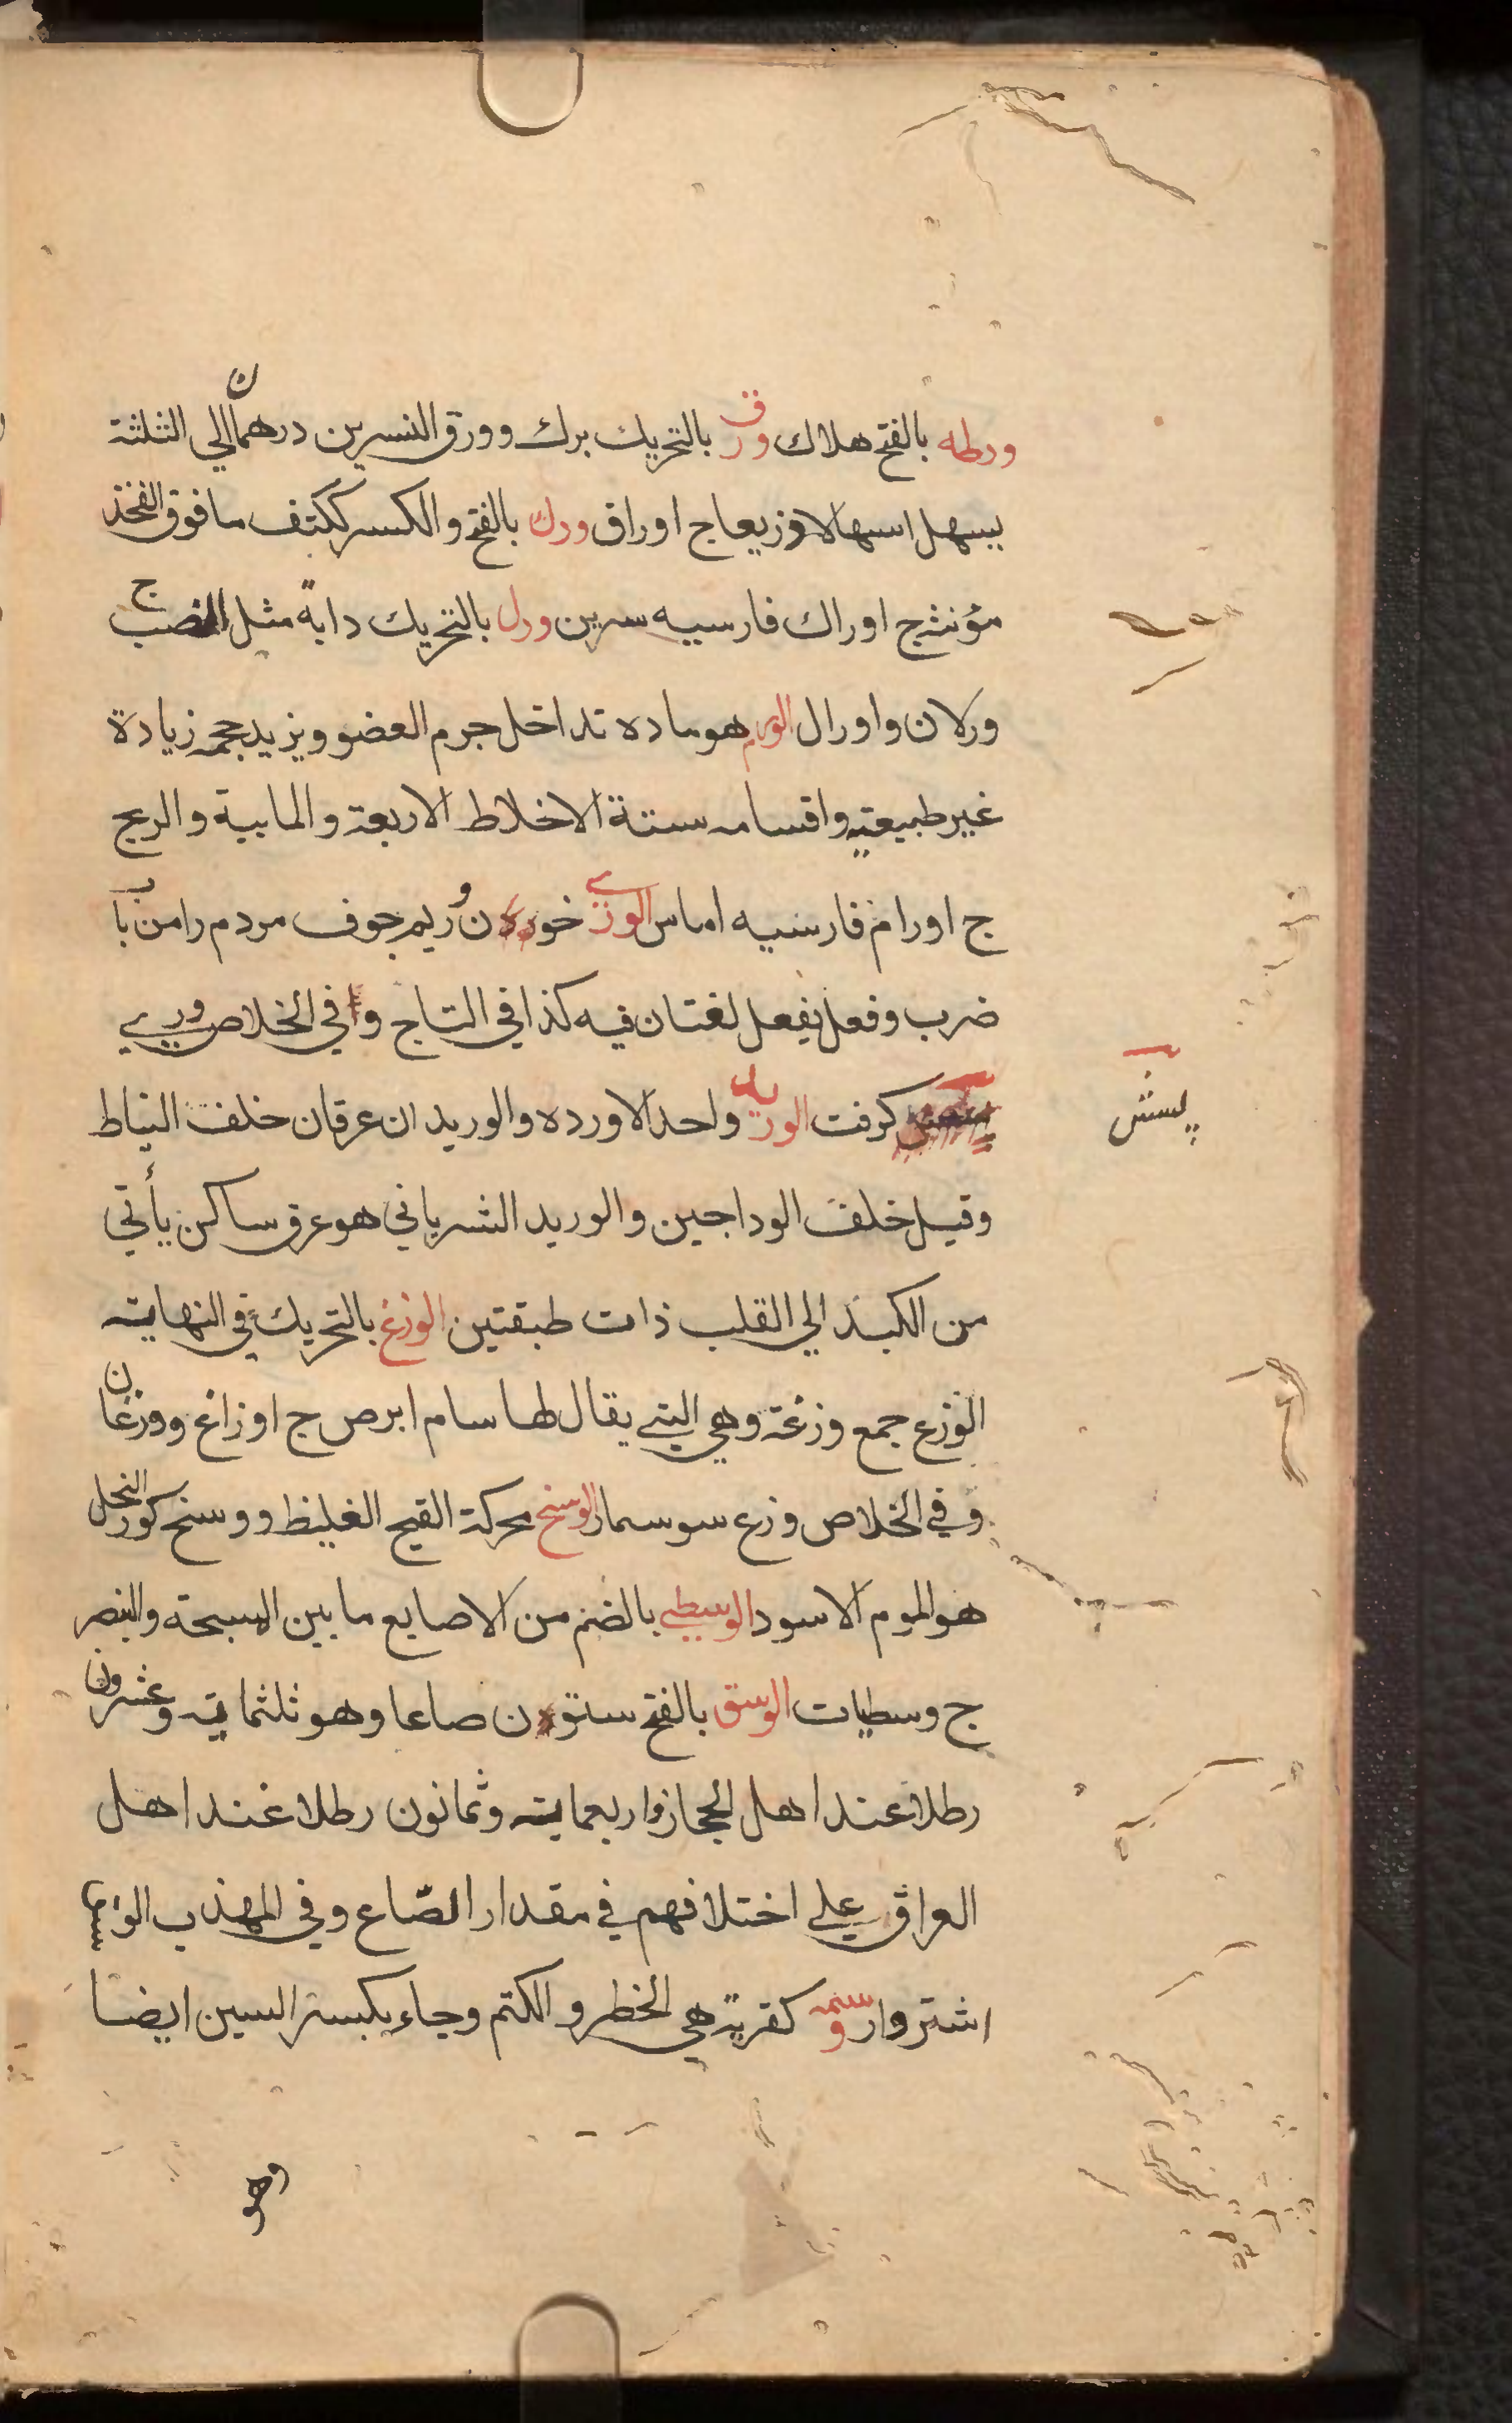 ورطه بالفتح هلاك ورق بالتحريك برك وورق النسرين درهمان الي الثلثة
يسهل اسهالا وزيعاج اوراق ورك بالفتح والكسر ككتف ما فوق الفخذ
مؤنث ج اوراك فارسيه سرين ورل بالتحريك دابة مثل الضب ج
ورلان واورال الورم هو ماده تداخل جرم العضو ويزيد حجمه زيادة
غير طبيعية واقسامه ستة الاخلاط الاربعة والمايية والريح
ج اورام فارسيه اماس الوري خوردن ريم جوف مردم را من باب
ضرب وفعل يفعل لغتان فيه كذا في التاج وفي الخلاص وري
كرفت الوريد واحد الاورده والوريدان عرقان خلف النياط
پيشش
وقيل خلف الوداجين والوريد الشرياني هو عرق ساكن يأتي
من الكبد الي القلب ذات طبقتين الوزغ بالتحريك في النهاية
الوزغ جمع وزغة وهي التي يقال لها سام ابرص ج اوزاغ ووزغان
وفي الخلاص وزع سوسمار الوسخ محركة القيح الغليظ ووسخ كور النحل
هو الموم الاسود الوسطي بالضم من الاصابع ما بين المسبحة والبنصر
ج وسطيات الوسق بالفتح ستون صاعا وهو ثلثماية وعشرون
رطلا عند اهل الحجاز واربعماية وثمانون رطلا عند اهل
العراق علي اختلافهم في مقدار الصاع وفي المهذب الوسق
اشتروار وسمه كقرية هي الخطر والكتم وجاء بكسر السين ايضا
وهو